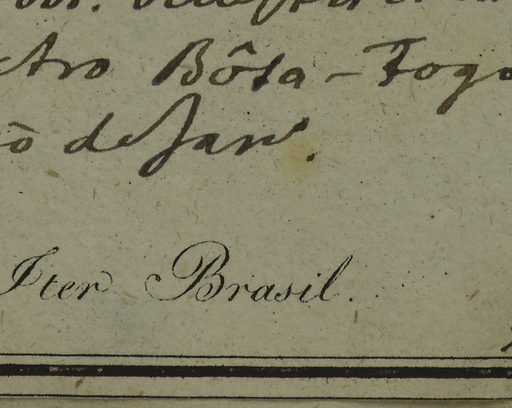 ctro Bôta-Fogo
ō de Janº.
Iter Brasil.